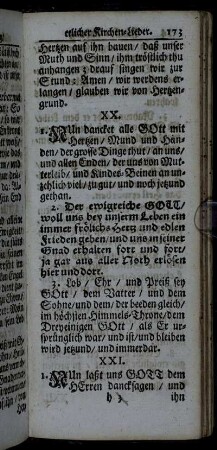 etlicher Kirchen-Lieder. 173
Hertzen auf ihn bauen / daß unser
Muth und Sinn / ihm tröstlich thu
anhangen ; drauf singen wir zur
Stund : Amen / wir werdens er-
langen / glauben wir von Hertzen-
grund.
XX.
1. NUn dancket alle GOtt mit
Hertzen / Mund und Hän-
den / der grosse Dinge thut / an uns /
und allen Enden / der uns von Mut-
terleib / und Kindes-Beinen an un-
zehlich viel / zu gut / und noch jetzund
gethan.
2. Der ewigreiche GOTT /
woll uns bey unserm Leben ein
immer frölichs Hertz und edlen
Frieden geben / und uns in seiner
Gnad erhalten fort und fort /
ja gar aus aller Noth erlösen
hier und dort.
3. Lob / Ehr / und Preiß sey
GOtt / dem Vatter / und dem
Sohne / und dem / der beeden gleich /
im höchsten Himmels-Throne / dem
Dreyeinigen GOtt / als Er ur-
sprünglich war / und ist / und bleiben
wird jetzund / und immerdar.
XXI.
1. NUn laßt uns GOTT dem
HErren dancksagen / und
h 3 ihn